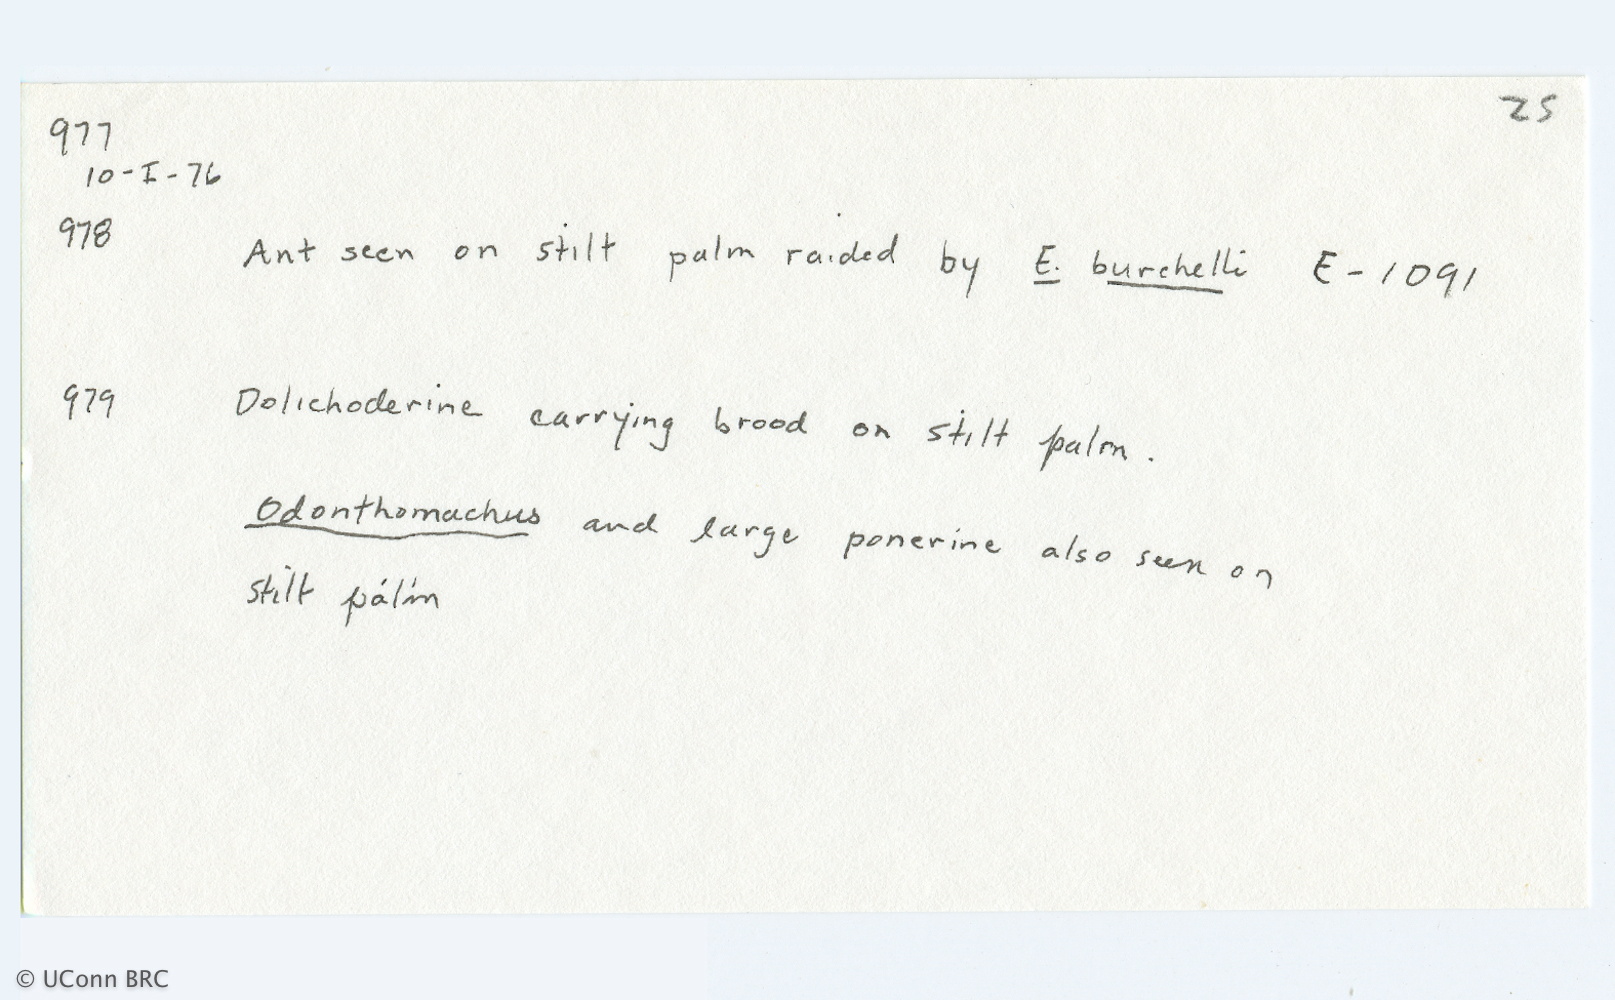 25
977
10-I-76
978 Ant seen on stilt palm raided by E. burchelli E-1091
979 Dolichoderine carrying brood on stilt palm.
Odonthomachus and large ponerine also seen on
stilt palm
© UConn BRC